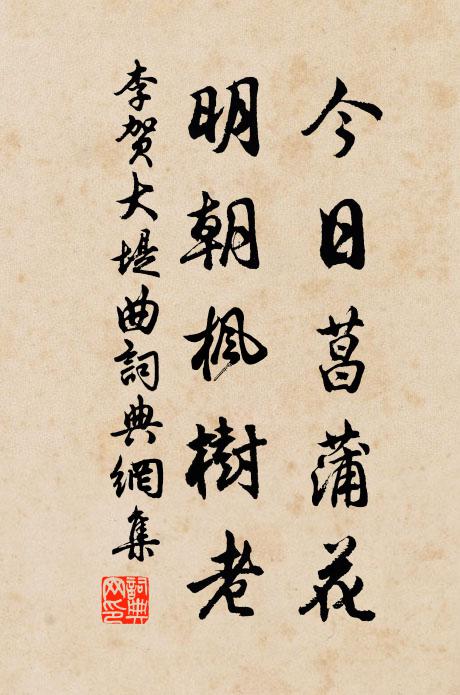 今日菖蒲花
明朝楓樹老
李賀大堤曲詞典網集
詞典
网印